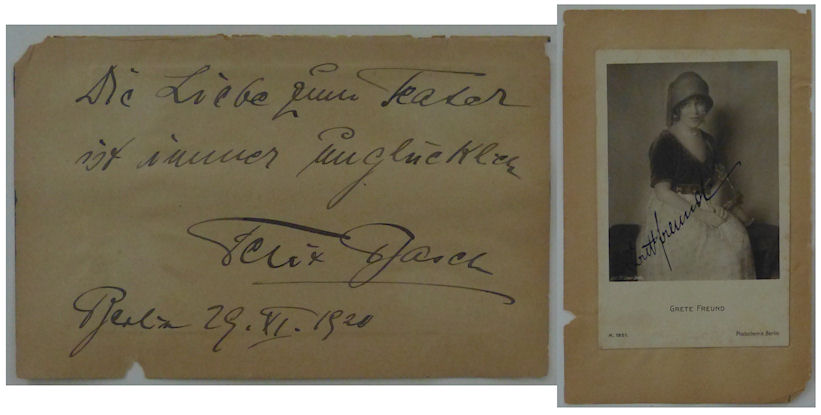 Die Liebe zum Teater
ist immer unglücklich
Felix Basch
Berlin 29. VI. 1920
Grete Freund
GRETE FREUND
K. 1851.
Photochemie, Berlin